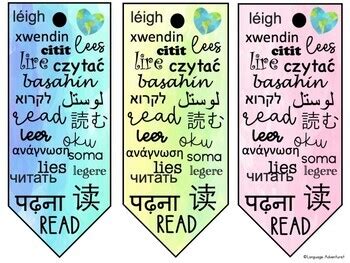 léigh
xwendin
citit lees
lire czytać
basahin
לקרוא لوستل
read 読む
leer oku
ανάγνωση soma
lies legere
читать
पढ़ना 读
READ
léigh
xwendin
citit lees
lire czytać
basahin
לקרוא لوستل
read 読む
leer oku
ανάγνωση soma
lies legere
читать
पढ़ना 读
READ
léigh
xwendin
citit lees
lire czytać
basahin
לקרוא لوستل
read 読む
leer oku
ανάγνωση soma
lies legere
читать
पढ़ना 读
READ
©Language